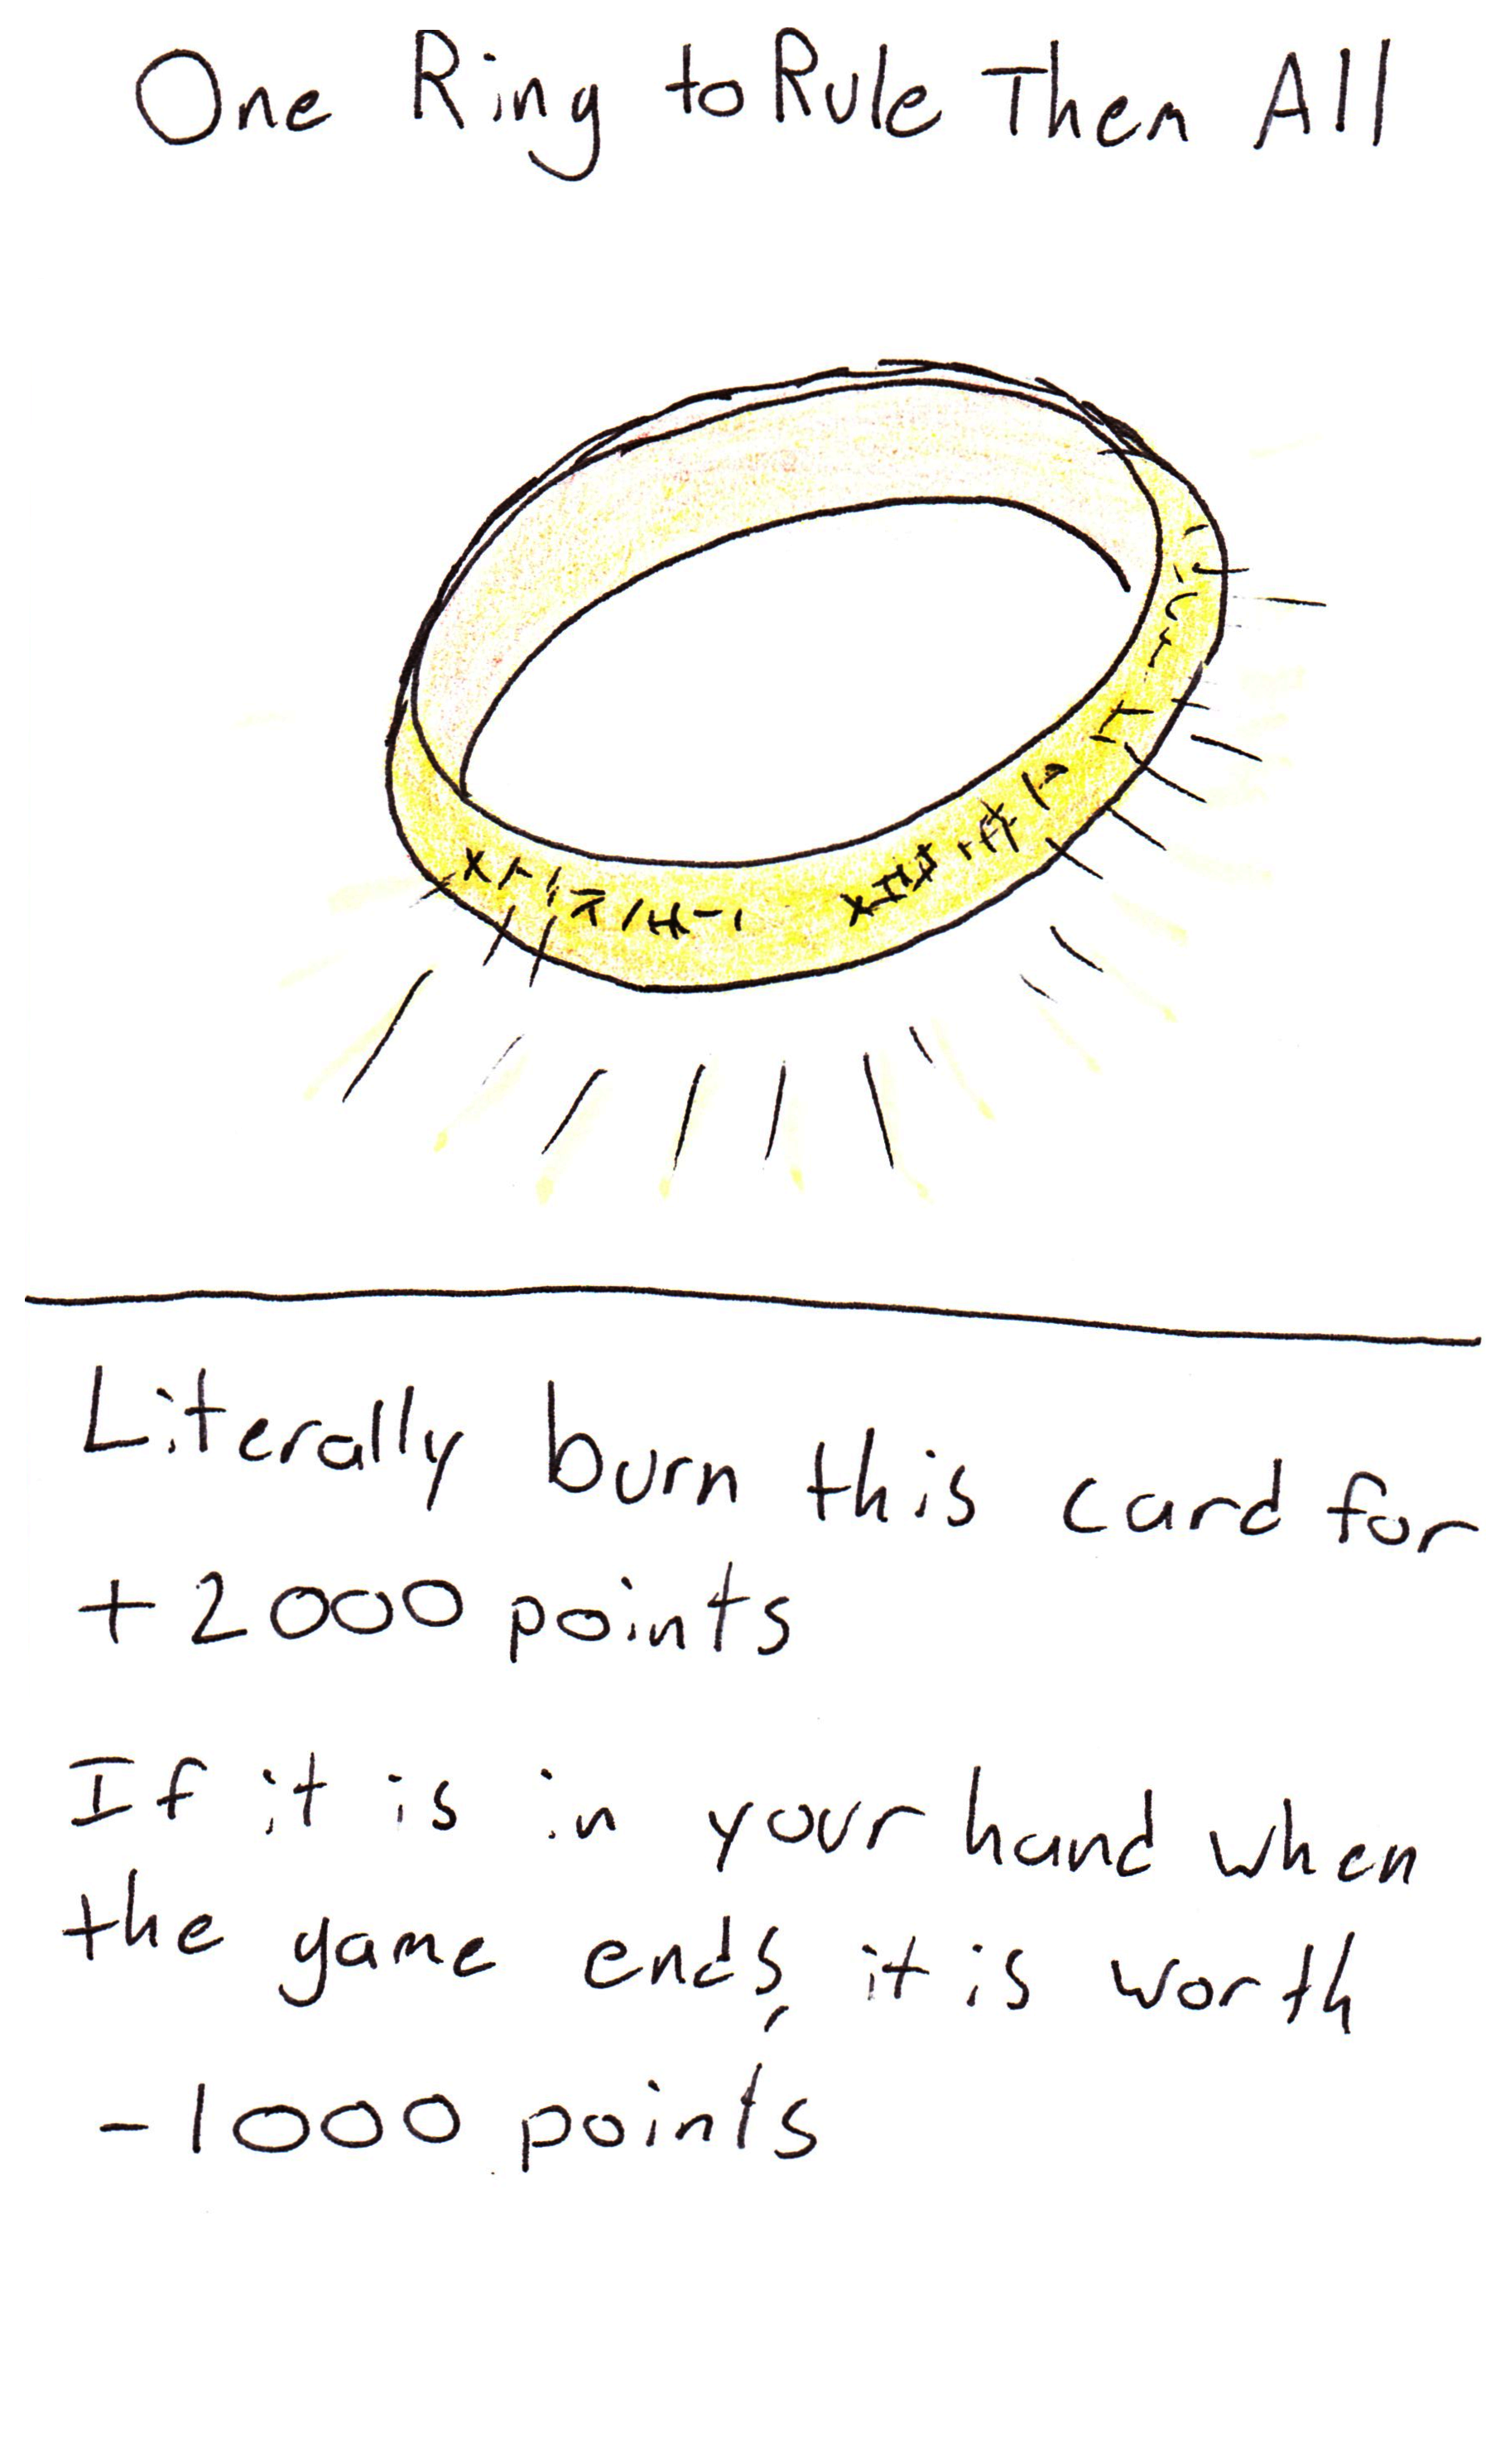 One Ring to Rule Them All
Literally burn this card for
+2000 points
If it is in your hand when
the game ends, it is worth
-1000 points